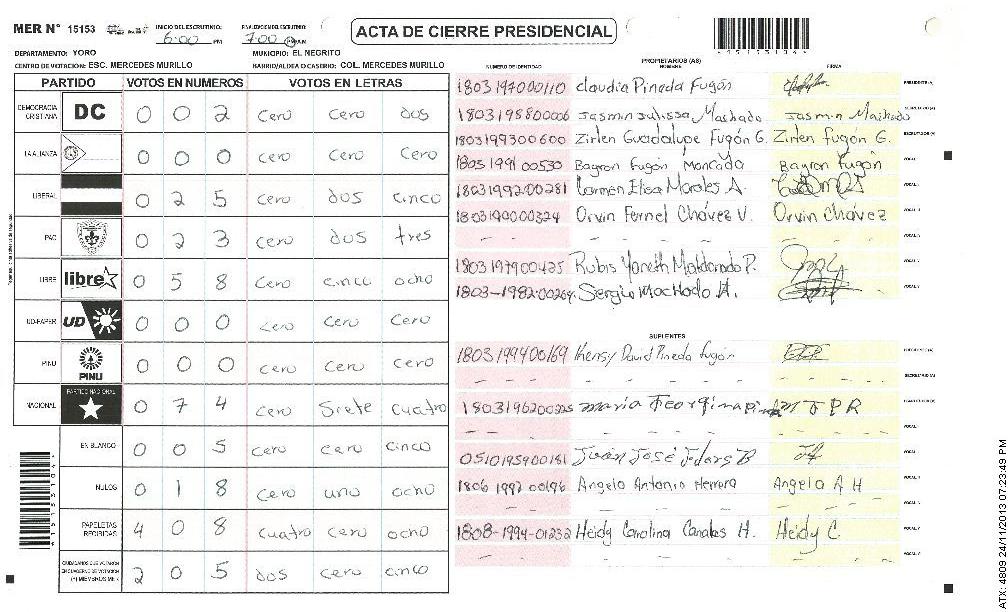 MER Nº 15153 INICIO DEL ESCRUTINIO: 6:00 PM FINALIZACION DEL ESCRUTINIO: 7:00 AM
ACTA DE CIERRE PRESIDENCIAL
DEPARTAMENTO: YORO MUNICIPIO: EL NEGRITO
CENTRO DE VOTACION: ESC. MERCEDES MURILLO BARRIO/ALDEA O CASERIO: COL. MERCEDES MURILLO
PARTIDO VOTOS EN NUMEROS VOTOS EN LETRAS
DEMOCRACIA CRISTIANA DC 0 0 2 cero cero dos
LA ALIANZA 0 0 0 cero cero cero
LIBERAL 0 2 5 cero dos cinco
PAC 0 2 3 cero dos tres
LIBRE libre 0 5 8 cero cinco ocho
UD-FAPER UD 0 0 0 cero cero cero
PINU PINU 0 0 0 cero cero cero
NACIONAL PARTIDO NACIONAL 0 7 4 cero siete cuatro
EN BLANCO 0 0 5 cero cero cinco
NULOS 0 1 8 cero uno ocho
PAPELETAS RECIBIDAS 4 0 8 cuatro cero ocho
2 0 5 dos cero cinco
PROPIETARIOS (AS)
NUMERO DE IDENTIDAD NOMBRE FIRMA
1803197000110 claudia Pineda Fugón PRESIDENTE (A)
1803198800006 Jasmin Julissa Machado Jasmin Machado SECRETARIO (A)
1803199300600 Zirlen Guadalupe Fugón G. Zirlen Fugón G. ESCRUTADOR (A)
1803199100530 Bayron Fugón Moncada Bayron Fugón
1803199200281 Carmen Elisa Morales A.
1803190000324 Orvin Fernel Chávez V. Orvin Chávez
1803197900425 Rubis Yaneth Maldonado P.
1803-1982-00264 Sergio Machado A.
SUPLENTES
1803199400169 Kensy David Pineda Fugón
SECRETARIO (A)
1803196200225 maria
0510195900181 Juan José
1806 1992 00196 Angela Antonio Herrera Angela A H
1808-1994-01232 Heidy Carolina Canales H. Heidy C.
ATX: 4809 24/11/2013 07:23:49 PM